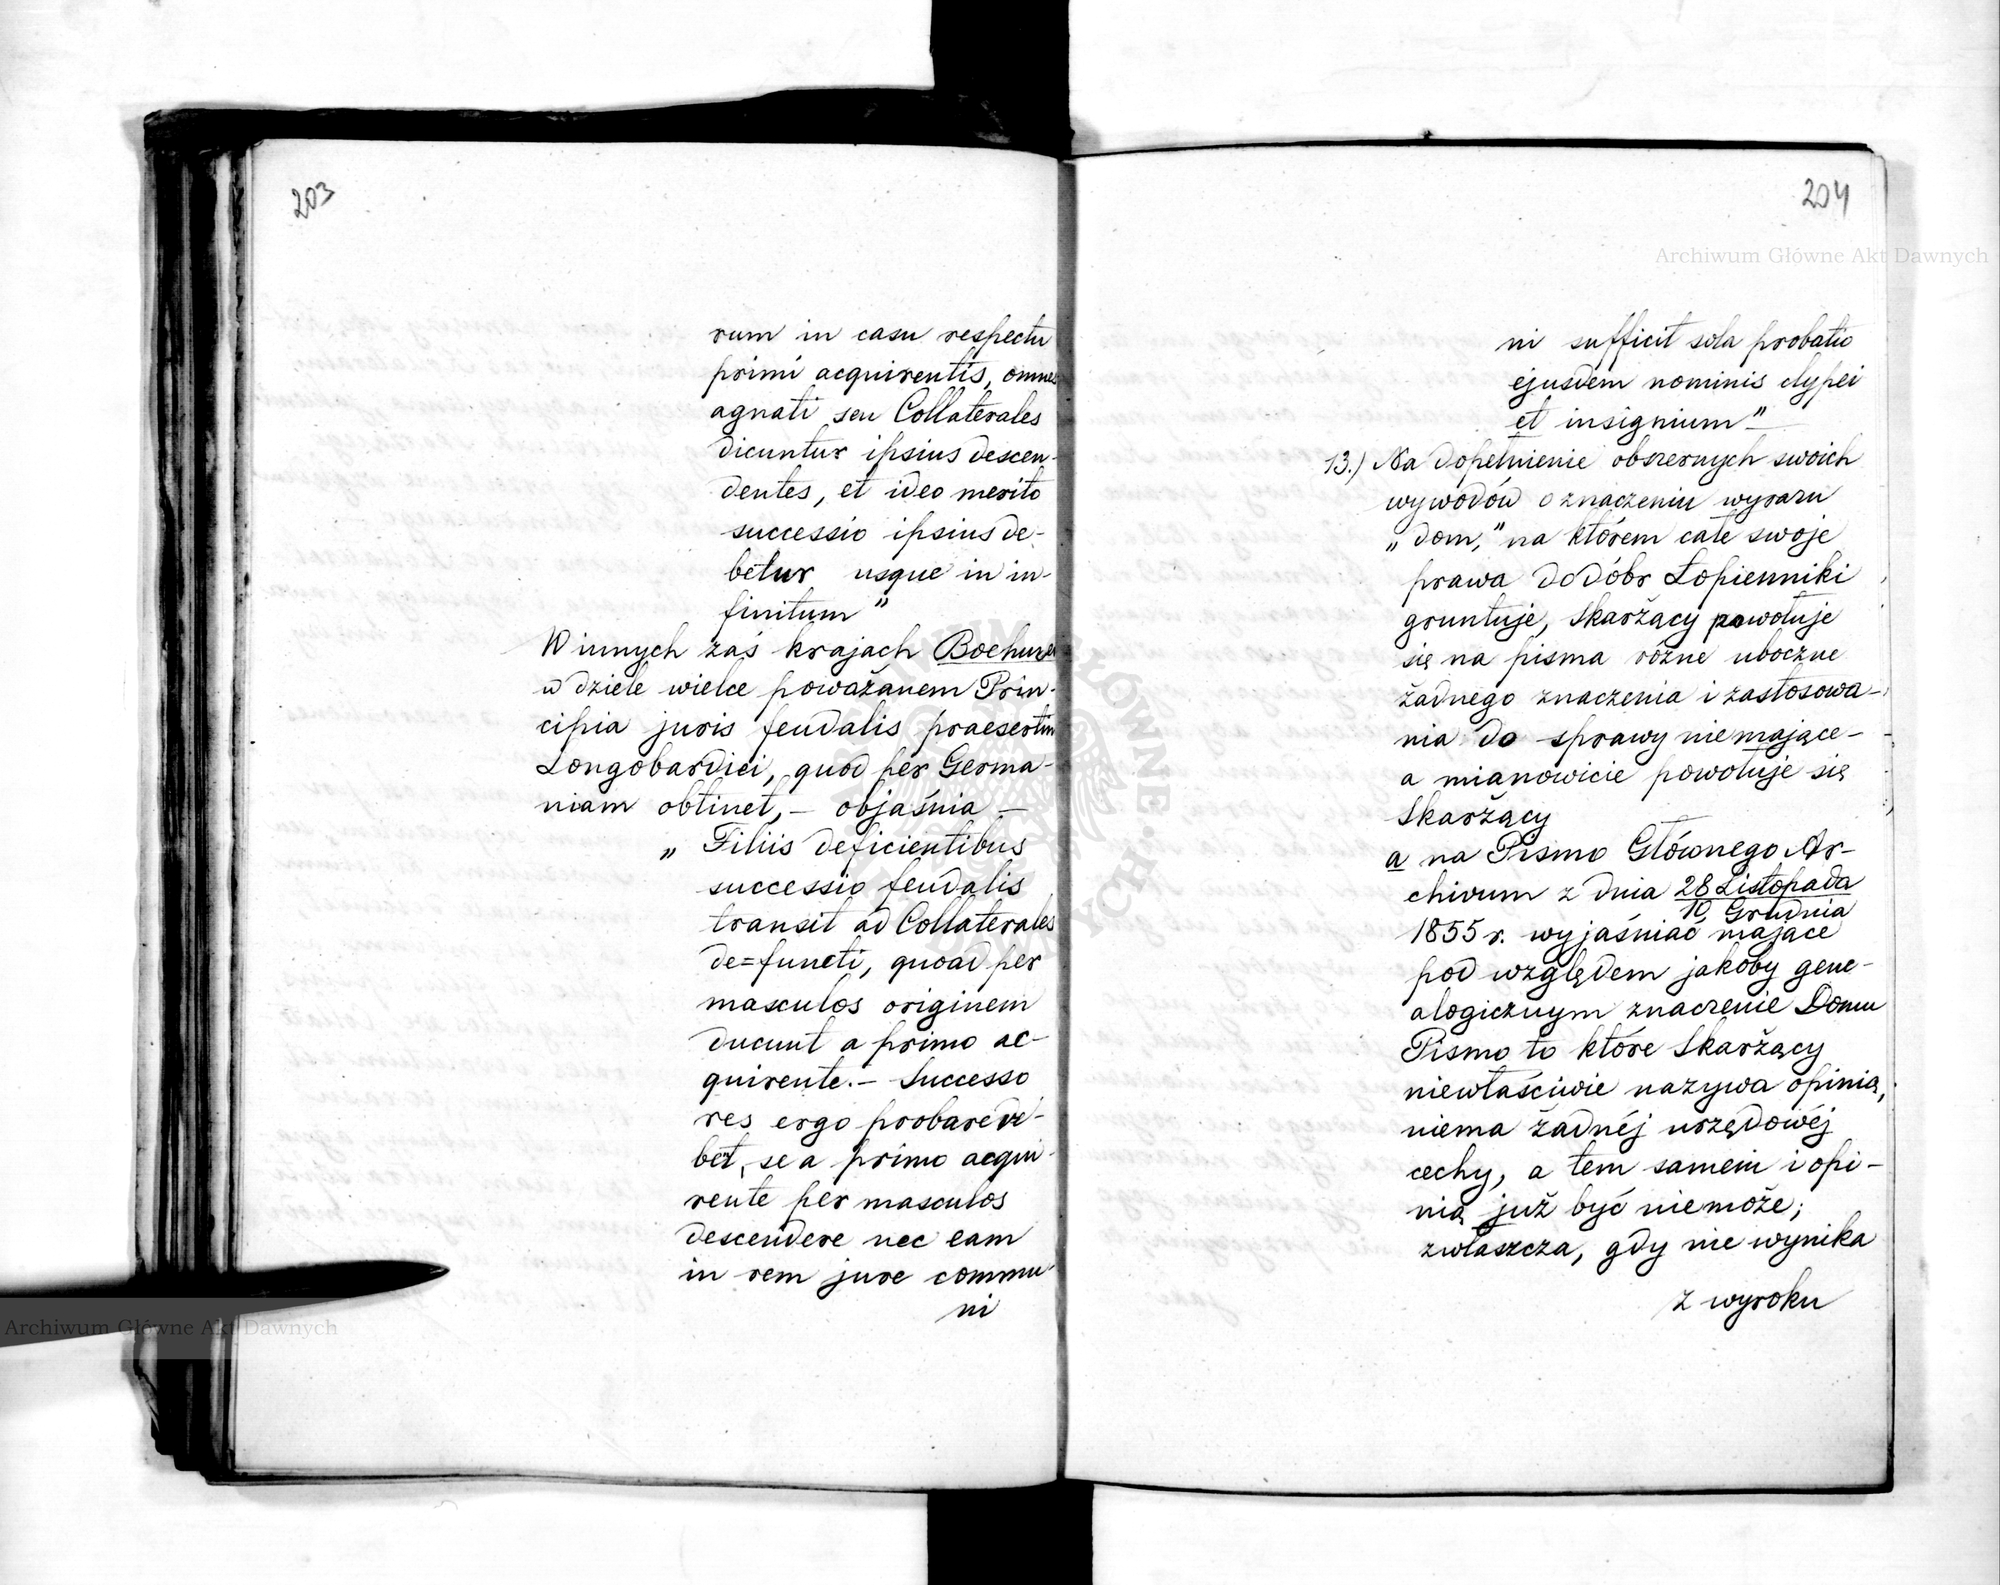 203
rum in casu respectu
primi acquirentis, omnes
agnati seu Collaterales
dicuntur ipsius descen-
dentes, et ideo merito
successio ipsius de-
betur usque in in-
finitum"
W innych zaś krajach
w dziele wielce poważanem Prin-
cipia juris feudalis praesertim
Longobardici, quod per Germa-
niam obtinet, — objaśnia —
„Filiis deficientibus
successio feudalis
transit ad Collaterales
de=functi, quoad per
masculos originem
ducunt a primo ac-
quirente. — Successo
res ergo probare de-
bet, se a primo acqui-
rente per masculos
descendere nec eam
in rem jure commu-
ni
204
ni sufficit sola probatio
ejusdem nominis clypei
et insignium"
13.) Na dopełnienie obszernych swoich
wywodów o znaczeniu wyrazu
„dom," na którem całe swoje
prawa do dóbr Łopienniki
gruntuje, Skarżący powołuje
się na pisma różne uboczne
żadnego znaczenia i zastosowa-
nia do sprawy niemające —
a mianowicie powołuje się
Skarżący
a na Pismo Głównego Ar-
chivum z dnia 28 Listopada
10 Grudnia
1855 r. wyjaśniać mające
pod względem jakoby gene-
alogicznym znaczenie Domu
Pismo to które Skarżący
niewłaściwie nazywa opinią,
niema żadnéj urzędowéj
cechy, a tem samem i opi-
nią już być niemoże;
zwłaszcza, gdy nie wynika
z wyroku
Archiwum Główne Akt Dawnych
Archiwum Główne Akt Dawnych